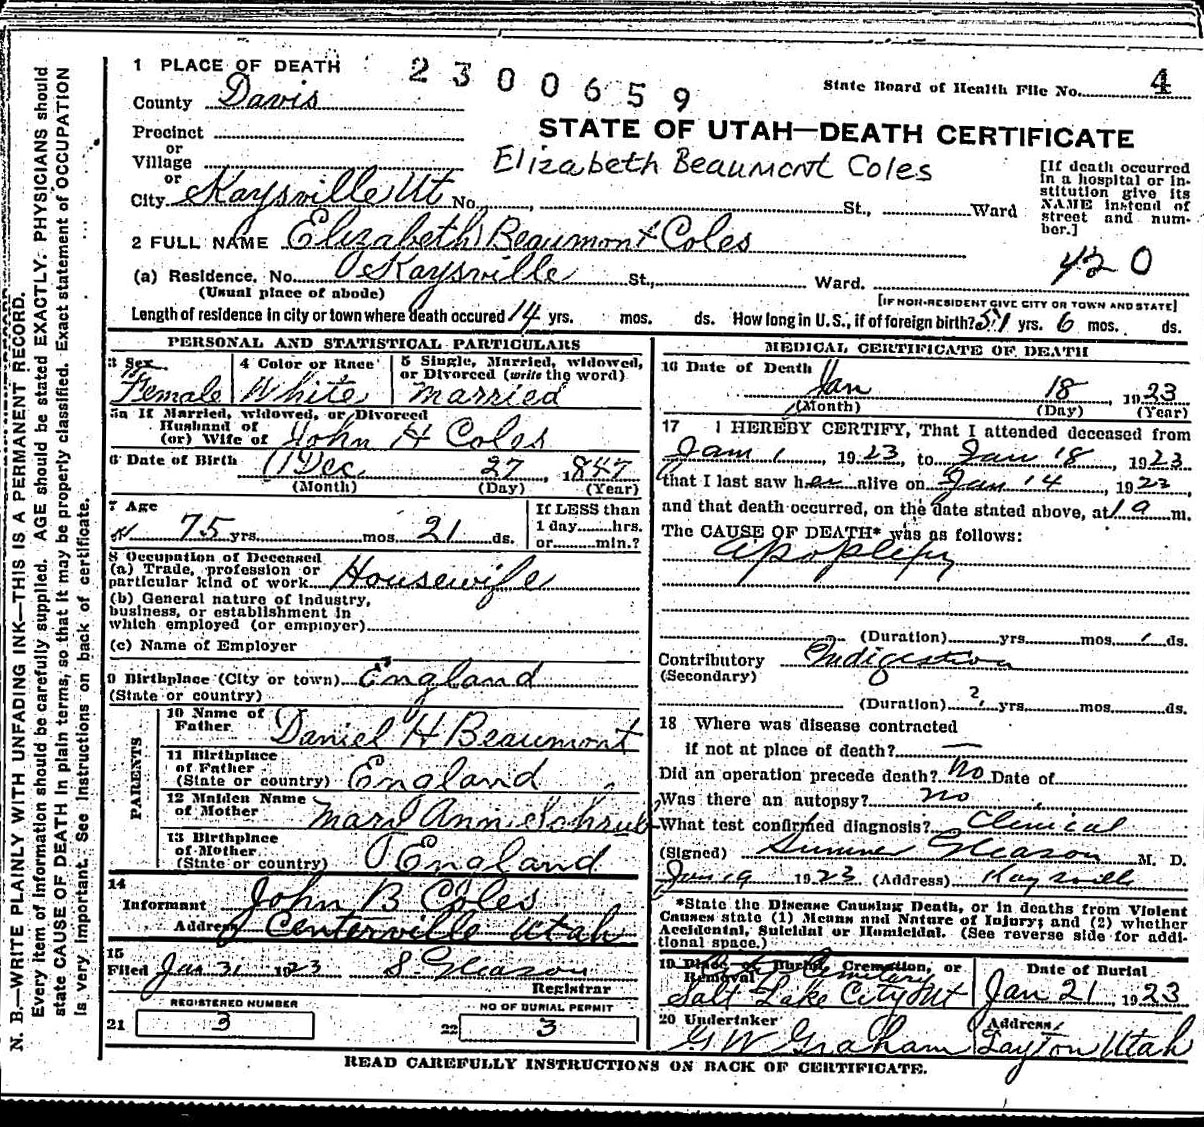 1 PLACE OF DEATH 2300659 State Board of Health File No. 4
County Davis
STATE OF UTAH—DEATH CERTIFICATE
Precinct
or
Village
Elizabeth Beaumont Coles
or
City Kaysville Ut No. St., Ward
[If death occurred
in a hospital or in-
stitution give its
NAME instead of
street and num-
ber.]
2 FULL NAME Elizabeth Beaumont Coles
420
(a) Residence. No. Kaysville St., Ward.
(Usual place of abode) [IF NON-RESIDENT GIVE CITY OR TOWN AND STATE]
Length of residence in city or town where death occured 14 yrs. mos. ds. How long in U.S., if of foreign birth? 51 yrs. 6 mos. ds.
PERSONAL AND STATISTICAL PARTICULARS
3 Sex 4 Color or Race 5 Single, Married, widowed,
or Divorced (write the word)
Female White Married
5a If Married, widowed, or Divorced
Husband of
(or) Wife of John H Coles
6 Date of Birth Dec 27, 1847
(Month) (Day) (Year)
7 Age If LESS than
75 yrs. mos. 21 ds. 1 day hrs.
or min.?
8 Occupation of Deceased
(a) Trade, profession or
particular kind of work Housewife
(b) General nature of Industry,
business, or establishment in
which employed (or employer)
(c) Name of Employer
9 Birthplace (City or town) England
(State or country)
PARENTS
10 Name of
Father Daniel H Beaumont
11 Birthplace
of Father England
(State or country)
12 Maiden Name
of Mother Mary Ann
13 Birthplace
of Mother
(State or country) England
14
Informant John B Coles
Address Centerville Utah
15
Filed Jan 31 1923 S. Gleason
Registrar
REGISTERED NUMBER NO OF BURIAL PERMIT
21 3 22 3
MEDICAL CERTIFICATE OF DEATH
16 Date of Death
Jan 18, 1923
(Month) (Day) (Year)
17 I HEREBY CERTIFY, That I attended deceased from
Jan 1, 1923, to Jan 18, 1923
that I last saw her alive on Jan 14, 1923,
and that death occurred, on the date stated above, at 1 a m.
The CAUSE OF DEATH* was as follows:
apoplexy
(Duration) yrs. mos. 1 ds.
Contributory Indigestion
(Secondary)
(Duration) 2 yrs. mos. ds.
18 Where was disease contracted
if not at place of death? —
Did an operation precede death? No Date of
Was there an autopsy? no
What test confirmed diagnosis? Clinical
(Signed) Sumner Gleason M. D.
Jan 19 1923 (Address) Kaysville
*State the Disease Causing Death, or in deaths from Violent
Causes state (1) Means and Nature of Injury; and (2) whether
Accidental, Suicidal or Homicidal. (See reverse side for addi-
tional space.)
19 Place of Burial, Cremation, or Date of Burial
Removal Cemetery
Salt Lake City Ut Jan 21, 1923
20 Undertaker Address
G W Graham Layton Utah
READ CAREFULLY INSTRUCTIONS ON BACK OF CERTIFICATE.
N. B.—WRITE PLAINLY WITH UNFADING INK—THIS IS A PERMANENT RECORD.
Every item of information should be carefully supplied. AGE should be stated EXACTLY. PHYSICIANS should
state CAUSE OF DEATH in plain terms, so that it may be properly classified. Exact statement of OCCUPATION
is very important. See Instructions on back of certificate.